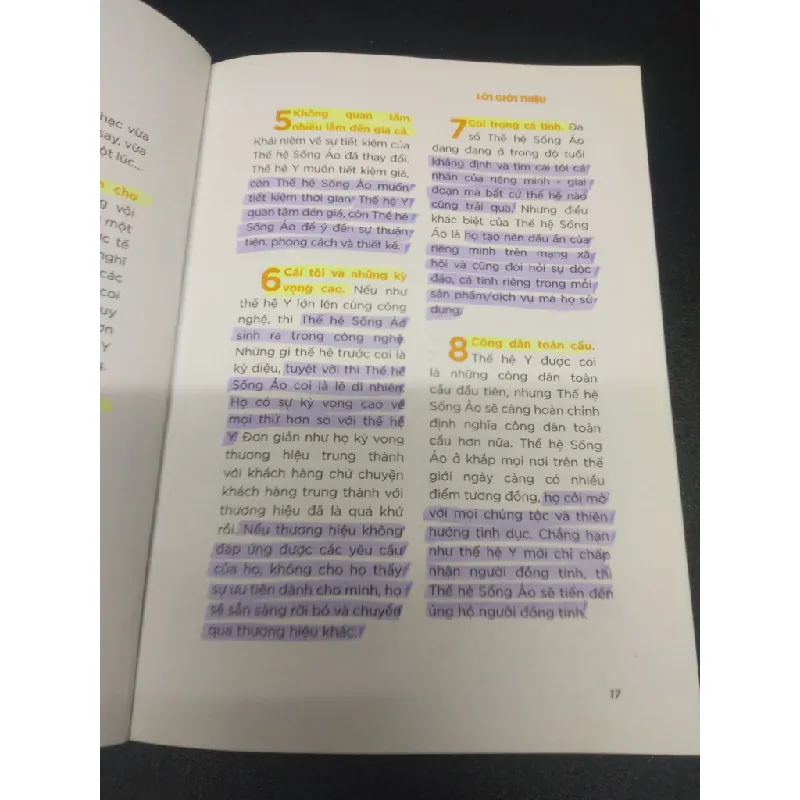 hạc vừa
say, vừa
ột lúc...
cho
g với
một
ực tế
nghĩ
các
coi
uy
ơn
Y
g.
LỜI GIỚI THIỆU
5 Không quan tâm
nhiều lắm đến giá cả.
Khái niệm về sự tiết kiệm của
Thế hệ Sống Ảo đã thay đổi.
Thế hệ Y muốn tiết kiệm giá,
còn Thế hệ Sống Ảo muốn
tiết kiệm thời gian. Thế hệ Y
quan tâm đến giá, còn Thế hệ
Sống Ảo để ý đến sự thuận
tiện, phong cách và thiết kế.
6 Cái tôi và những kỳ
vọng cao. Nếu như
thế hệ Y lớn lên cùng công
nghệ, thì Thế hệ Sống Ảo
sinh ra trong công nghệ.
Những gì thế hệ trước coi là
kỳ diệu, tuyệt vời thì Thế hệ
Sống Ảo coi là lẽ dĩ nhiên.
Họ có sự kỳ vọng cao về
mọi thứ hơn so với thế hệ
Y. Đơn giản như họ kỳ vọng
thương hiệu trung thành
với khách hàng chứ chuyện
khách hàng trung thành với
thương hiệu đã là quá khứ
rồi. Nếu thương hiệu không
đáp ứng được các yêu cầu
của họ, không cho họ thấy
sự ưu tiên dành cho mình, họ
sẽ sẵn sàng rời bỏ và chuyển
qua thương hiệu khác.
7 Coi trọng cá tính. Đa
số Thế hệ Sống Ảo
đang đang ở trong độ tuổi
khẳng định và tìm cái tôi cá
nhân của riêng mình - giai
đoạn mà bất cứ thế hệ nào
cũng trải qua. Nhưng điều
khác biệt của Thế hệ Sống
Ảo là họ tạo nên dấu ấn của
riêng mình trên mạng xã
hội và cũng đòi hỏi sự độc
đáo, cá tính riêng trong mỗi
sản phẩm/dịch vụ mà họ sử
dụng.
8 Công dân toàn cầu.
Thế hệ Y được coi
là những công dân toàn
cầu đầu tiên, nhưng Thế hệ
Sống Ảo sẽ càng hoàn chỉnh
định nghĩa công dân toàn
cầu hơn nữa. Thế hệ Sống
Ảo ở khắp mọi nơi trên thế
giới ngày càng có nhiều
điểm tương đồng, họ cởi mở
với mọi chủng tộc và thiên
hướng tình dục. Chẳng hạn
như thế hệ Y mới chỉ chấp
nhận người đồng tính, thì
Thế hệ Sống Ảo sẽ tiến đến
ủng hộ người đồng tính.
17